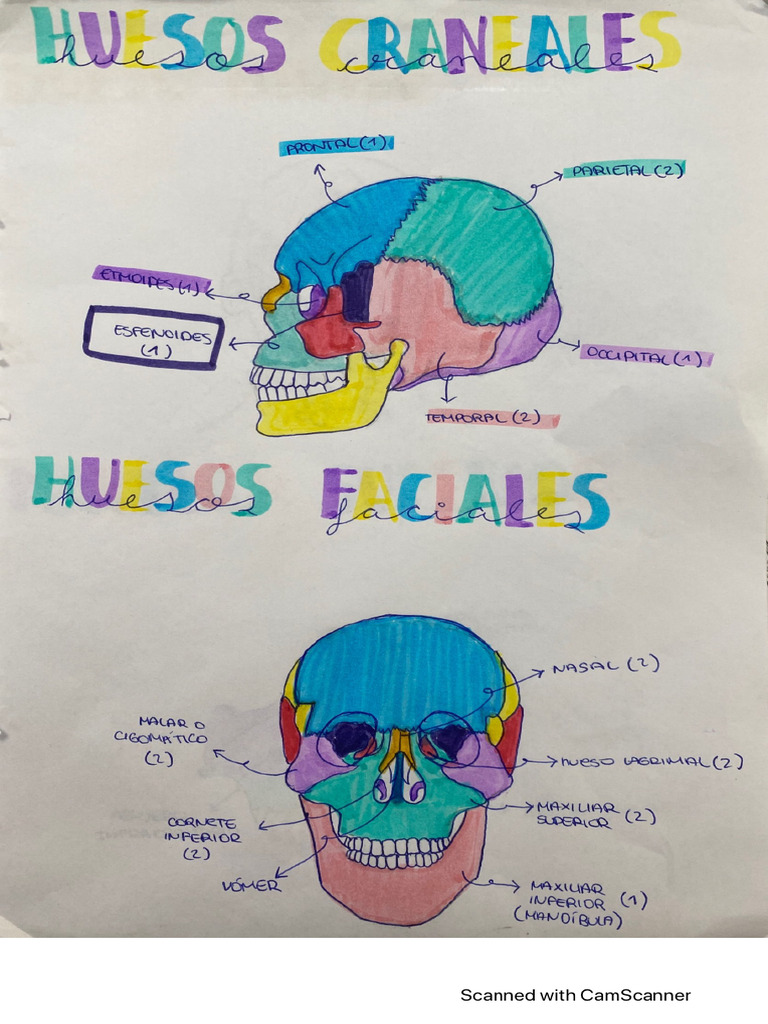 HUESOS CRANEALES
huesos craneales
FRONTAL (1)
PARIETAL (2)
ETMOIDES (1)
ESFENOIDES
(1)
OCCIPITAL (1)
TEMPORAL (2)
HUESOS FACIALES
huesos faciales
NASAL (2)
MALAR O
CIGOMÁTICO
(2)
HUESO LAGRIMAL (2)
CORNETE
INFERIOR
(2)
MAXILIAR
SUPERIOR (2)
VÓMER
MAXILIAR
INFERIOR (1)
(MANDÍBULA)
Scanned with CamScanner